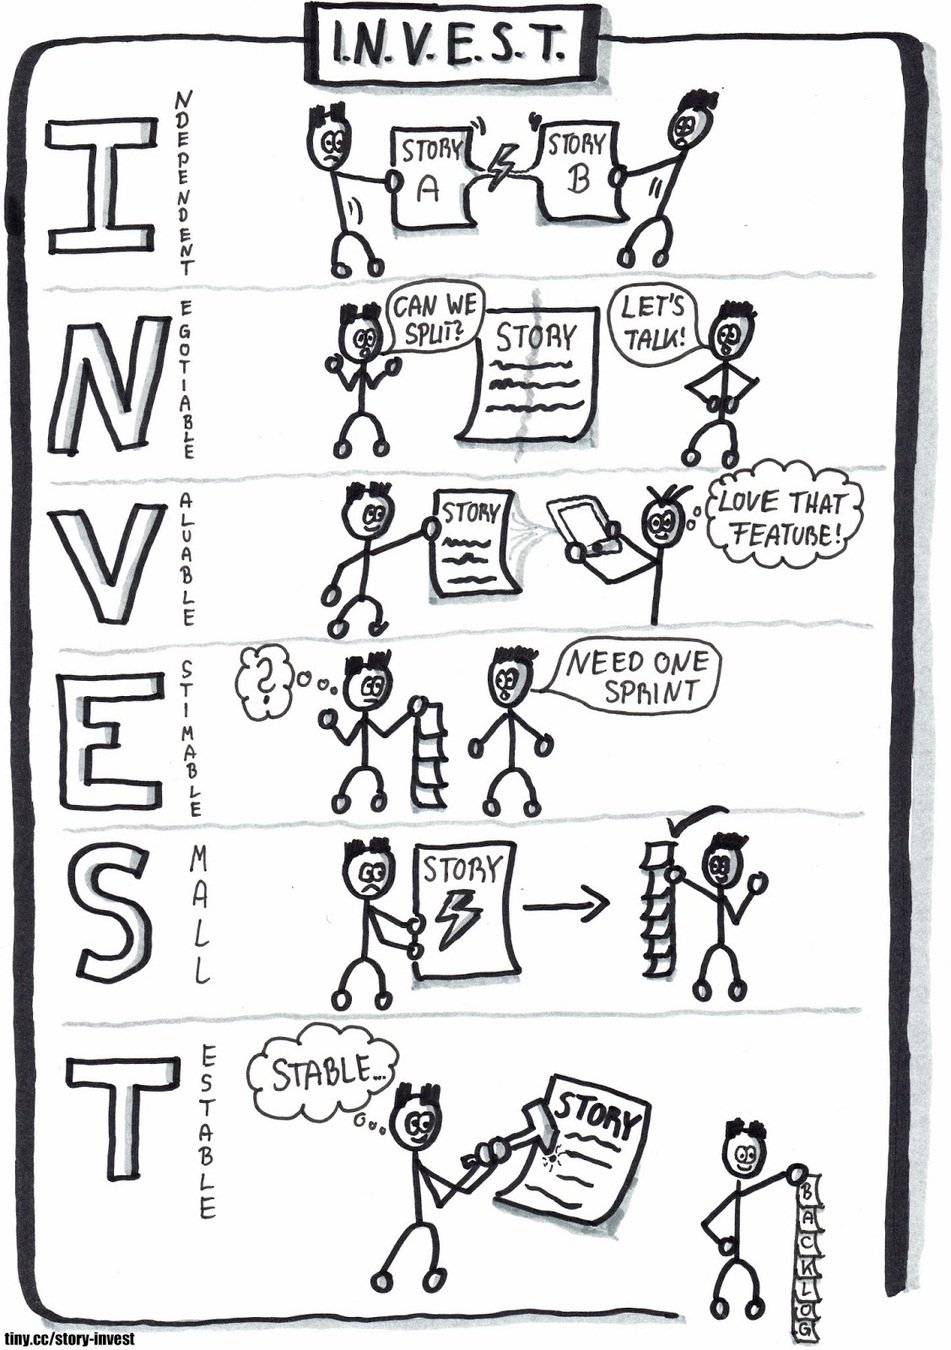 I.N.V.E.S.T.
I
NDEPENDENT
STORY
A
STORY
B
N
EGOTIABLE
CAN WE
SPLIT?
STORY
LET'S
TALK!
V
ALUABLE
STORY
LOVE THAT
FEATURE!
E
STIMABLE
?
NEED ONE
SPRINT
S
MALL
STORY
T
ESTABLE
STABLE...
STORY
BACKLOG
tiny.cc/story-invest